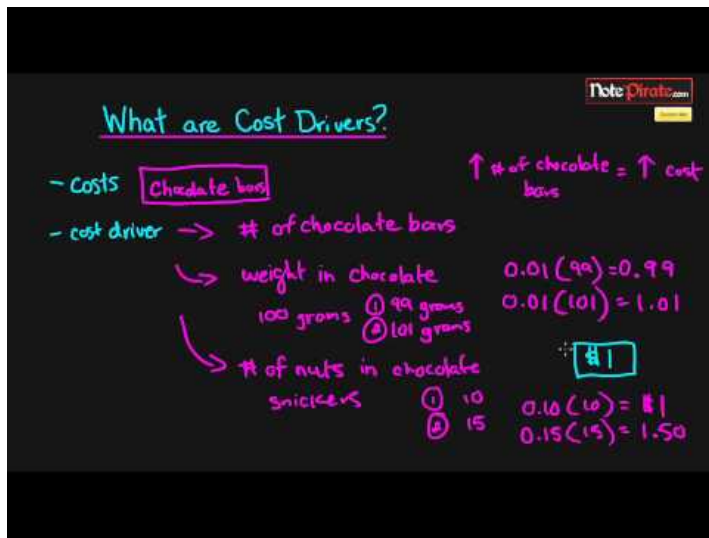 NotePirate.com
What are Cost Drivers?
- costs Chocolate bars
↑ # of chocolate bars = ↑ cost
- cost driver → # of chocolate bars
weight in chocolate
100 grams ① 99 grams
② 101 grams
0.01(99)=0.99
0.01(101)=1.01
$1
# of nuts in chocolate
snickers ① 10
② 15
0.10(10)=$1
0.15(15)=1.50